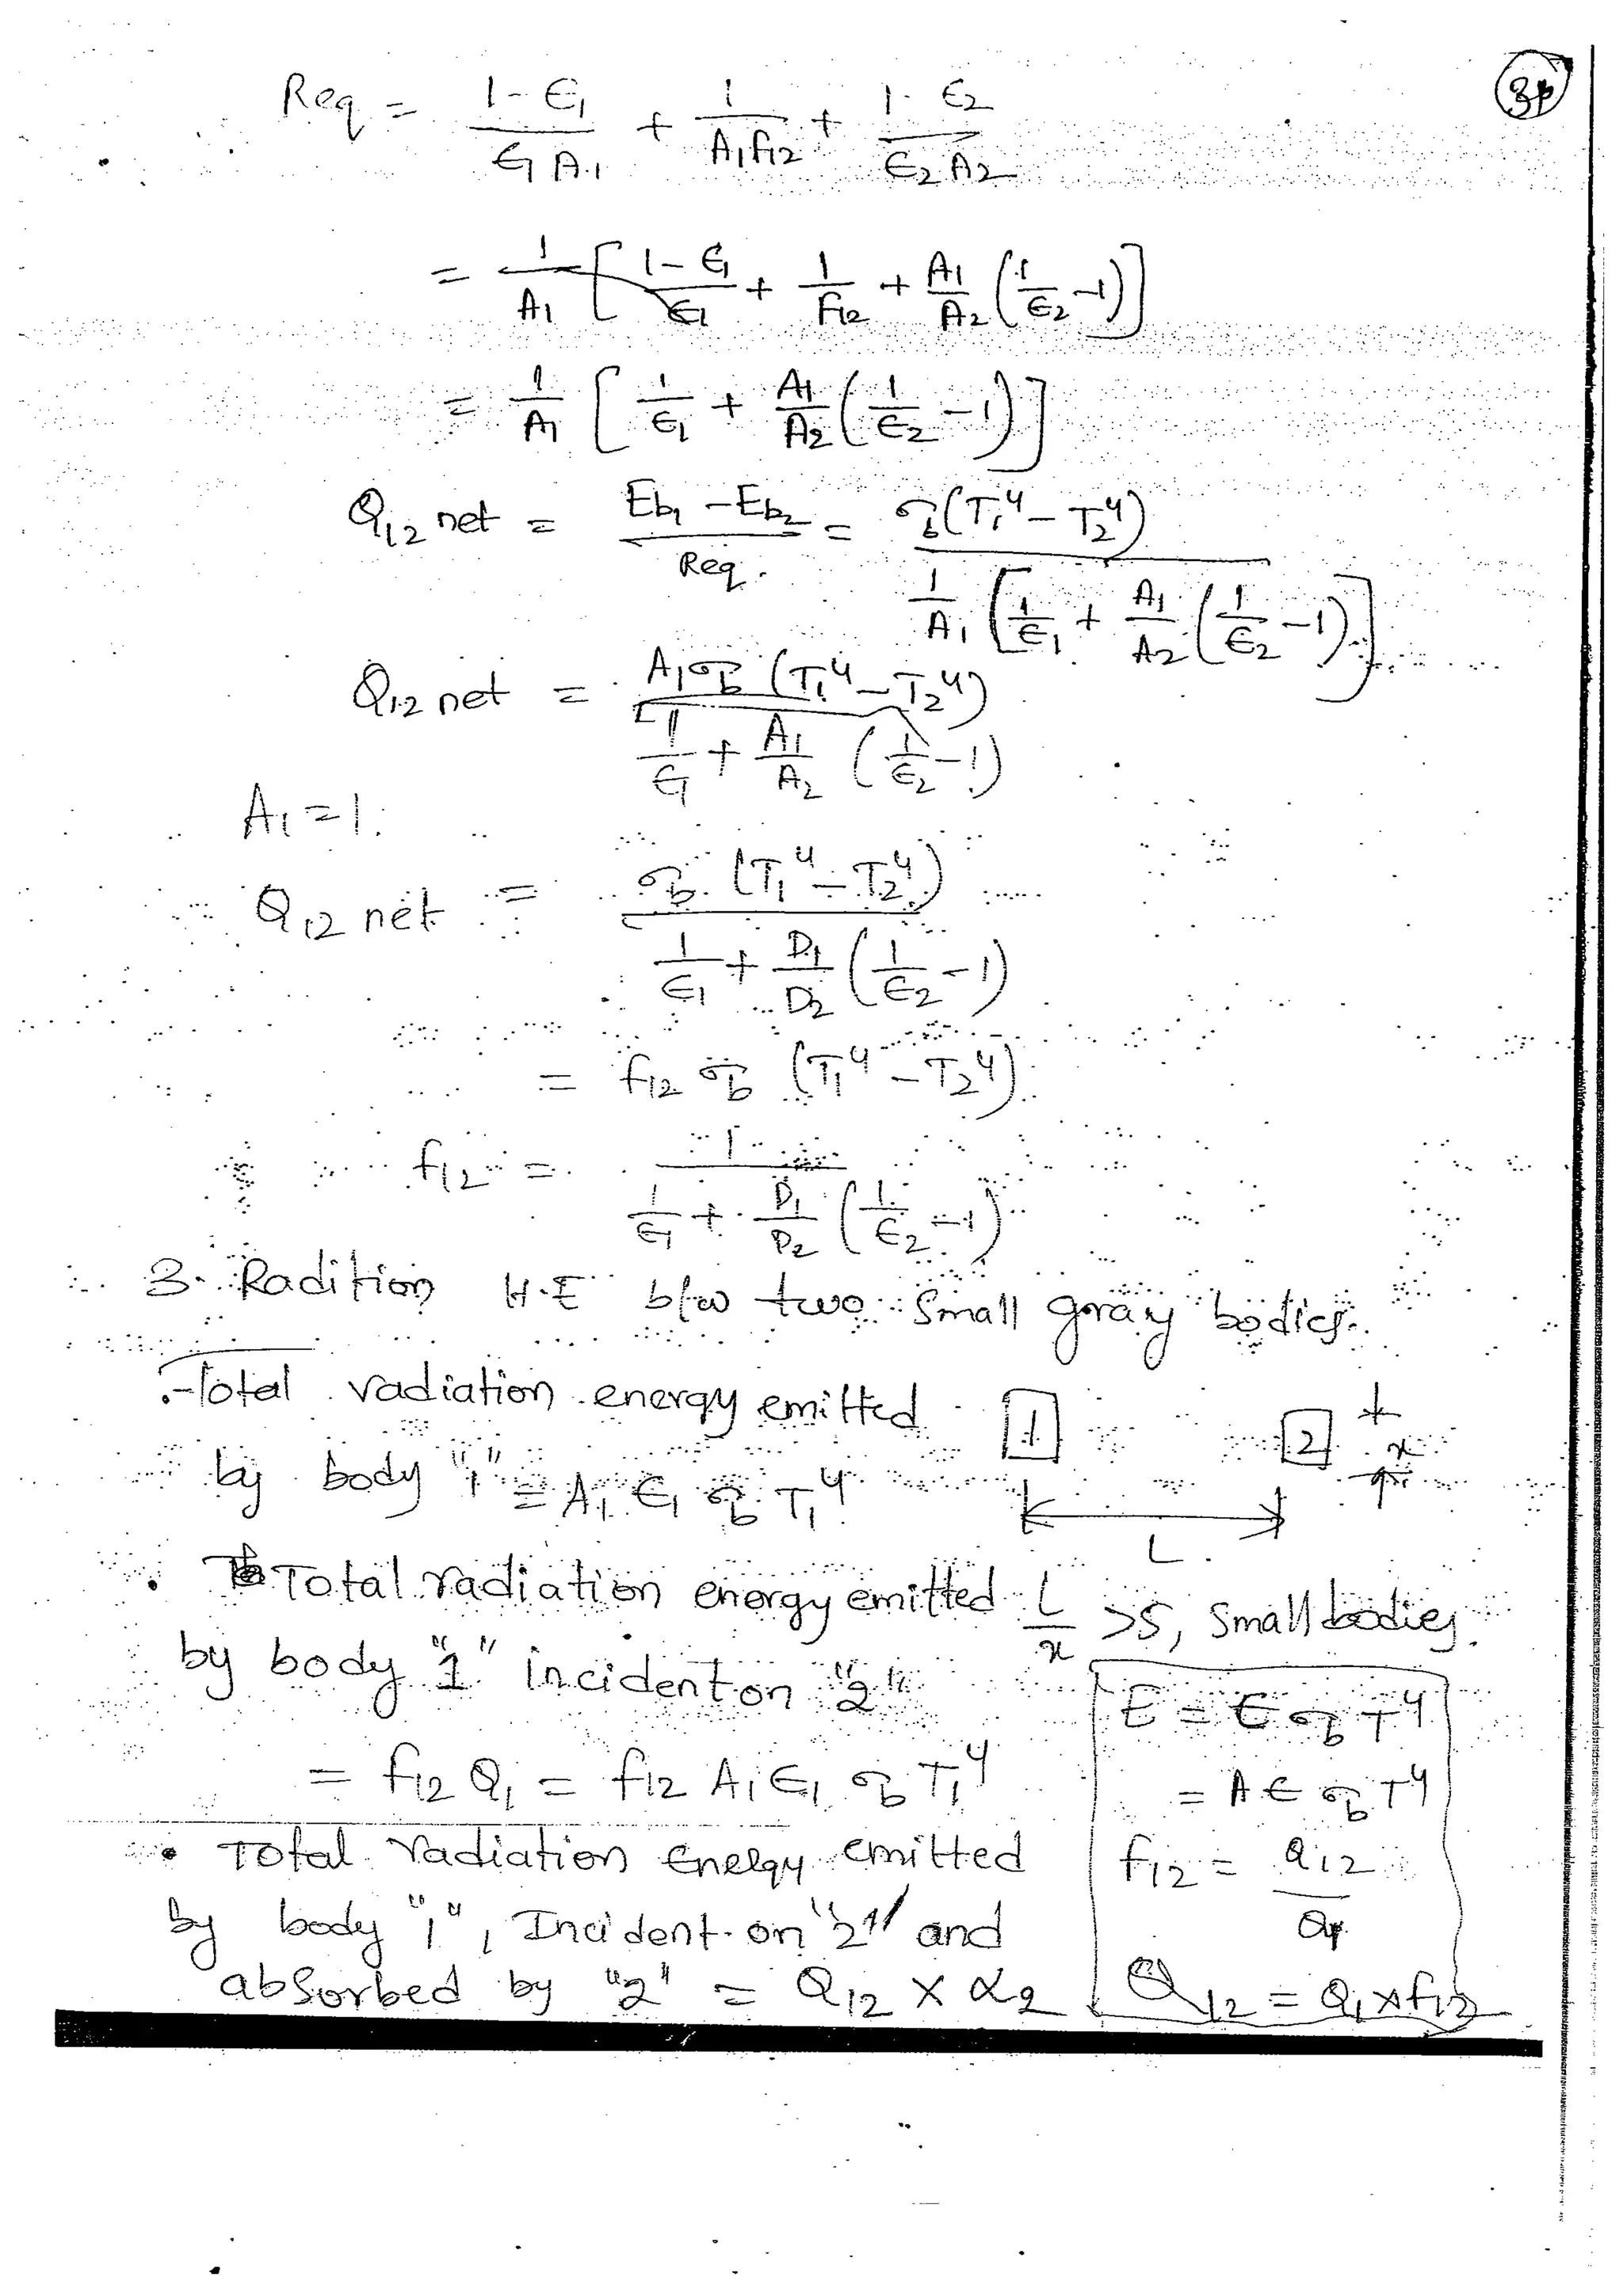 3p
Req = (1-ϵ1)/(ϵ1 A1) + 1/(A1 f12) + (1-ϵ2)/(ϵ2 A2)
= 1/A1 [ (1-ϵ1)/ϵ1 + 1/F12 + A1/A2 (1/ϵ2 -1) ]
= 1/A1 [ 1/ϵ1 + A1/A2 (1/ϵ2 -1) ]
Q12 net = (Eb1 - Eb2)/Req. = σb(T1⁴ - T2⁴) / ( 1/A1 [ 1/ϵ1 + A1/A2 (1/ϵ2 -1) ] )
Q12 net = A1 σb (T1⁴ - T2⁴) / ( 1/ϵ1 + A1/A2 (1/ϵ2 -1) )
A1 = 1.
Q12 net = σb (T1⁴ - T2⁴) / ( 1/ϵ1 + D1/D2 (1/ϵ2 -1) )
= f12 σb (T1⁴ - T2⁴)
f12 = 1 / ( 1/ϵ1 + D1/D2 (1/ϵ2 -1) )
3. Radition H.E b/w two Small gray bodies.
.Total radiation energy emitted
by body "1" = A1 ϵ1 σb T1⁴
1 2 x
L
• Total radiation energy emitted
by body "1" incident on "2"
= f12 Q1 = f12 A1 ϵ1 σb T1⁴
L/x >5, Small bodies.
E = ϵ σb T⁴
= A ϵ σb T⁴
f12 = Q12/Q1
Q12 = Q1 x f12
• Total radiation Energy emitted
by body "1", Incident on "2" and
absorbed by "2" = Q12 x α2